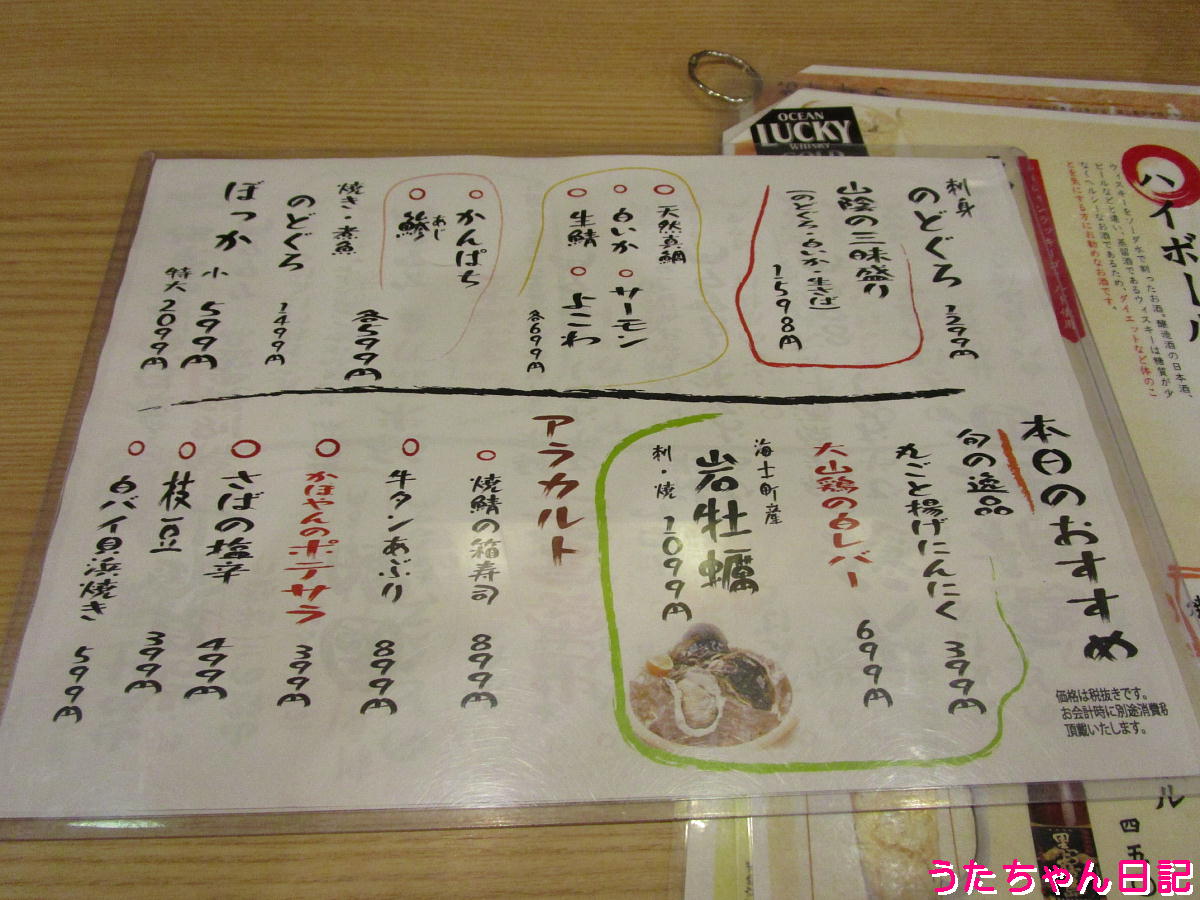 本日のおすすめ
価格は税抜きです。
お会計時に別途消費税
頂戴いたします。
刺身
のどぐろ 1299円
山陰の三味盛り
(のどぐろ・白いか・生さば)
1598円
○天然真鯛
○白いか ○サーモン
○生鯖 ○よこわ
各699円
○かんぱち
○鯵
あじ
各599円
焼き・煮魚
のどぐろ 1499円
ぼっか
小 599円
特大 2099円
旬の逸品
丸ごと揚げにんにく 399円
大山鶏の白レバー 699円
海士町産
岩牡蠣
刺・焼 1099円
アラカルト
○焼鯖の箱寿司 899円
○牛タンあぶり 899円
○かほやんのポテサラ 399円
○さばの塩辛 499円
○枝豆 399円
○白バイ貝浜焼き 599円
OCEAN
LUCKY
WHISKY
GOLD
ハイボール
ウィスキーをソーダ水で割ったお酒。醸造酒の日本酒、
ビールなどと違い、蒸留酒であるウィスキーは糖質が少
なくヘルシーなお酒であるため、ダイエットなど体のこ
とを気にする方にお勧めなお酒です。
ル
四五〇
黒
うたちゃん日記